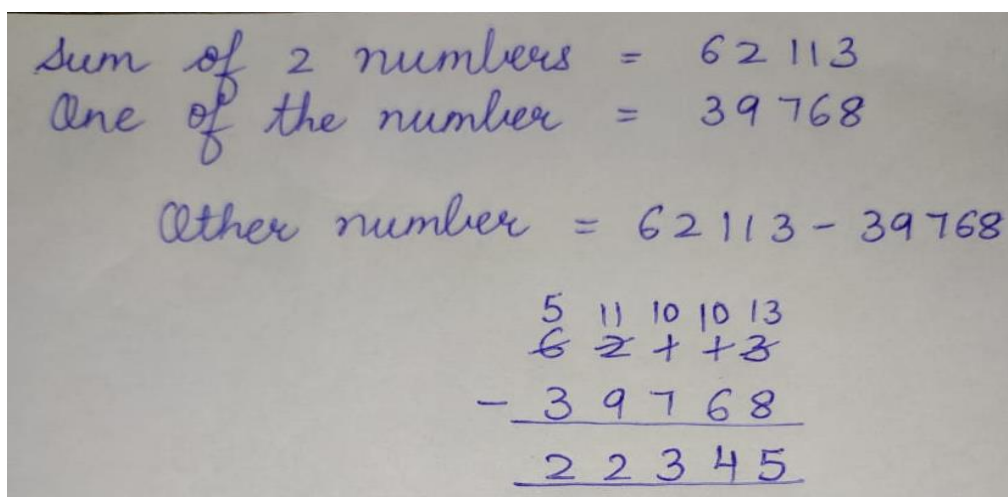 Sum of 2 numbers = 62113
One of the number = 39768
Other number = 62113 - 39768
5 11 10 10 13
6 2 1 1 3
- 3 9 7 6 8
2 2 3 4 5